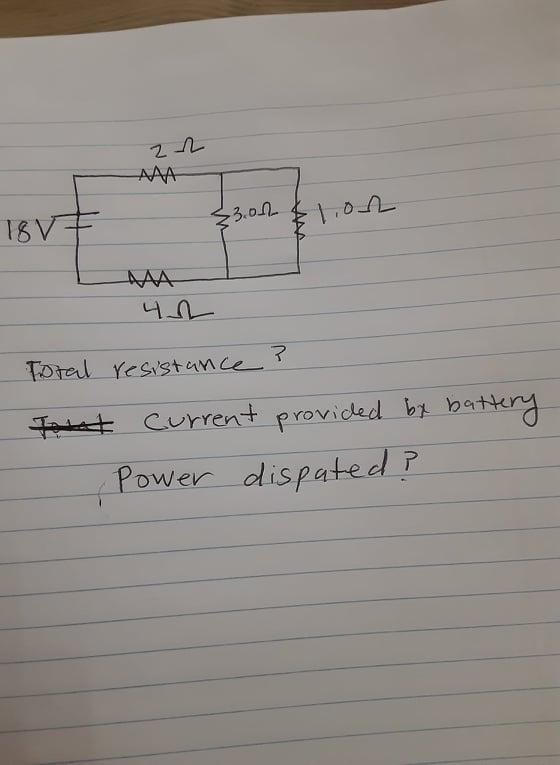 2 Ω
18V
3.0Ω
1.0Ω
4 Ω
Total resistance ?
Current provided by battery
Power dispated ?